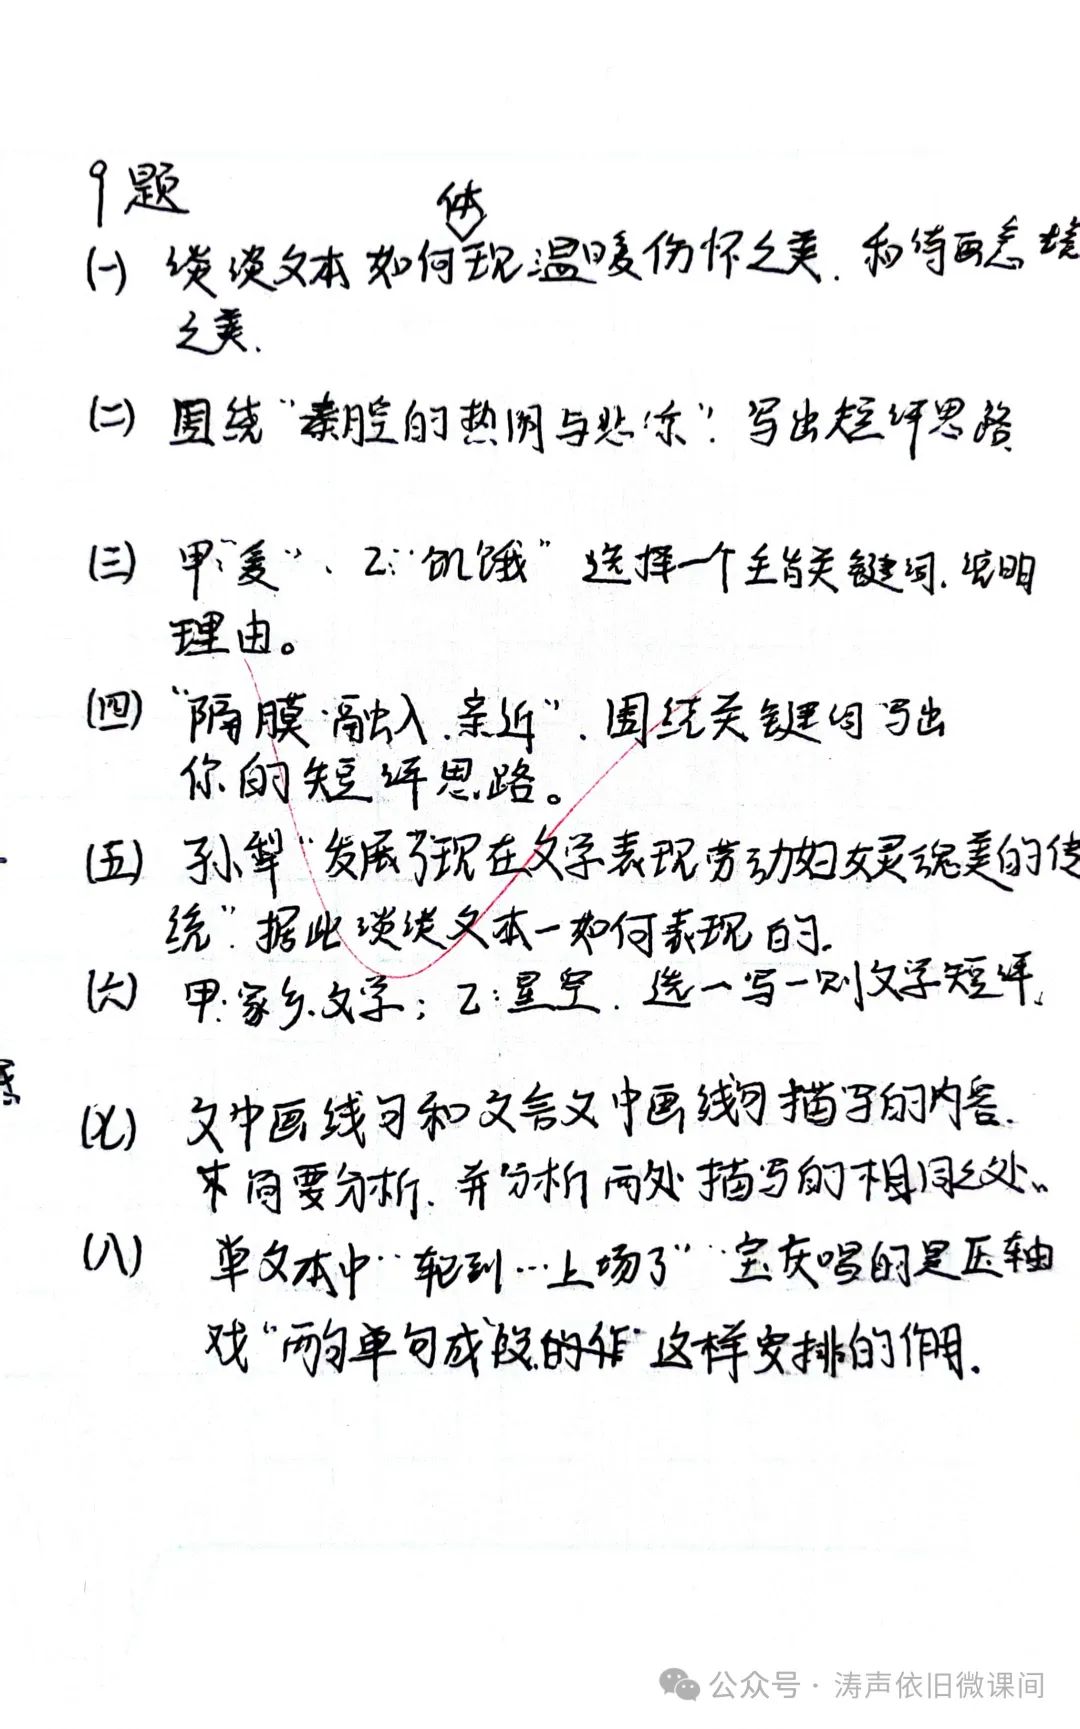 9题
(一) 谈谈文本如何体现温暖伤怀之美.和诗画意境
之美.
(二) 围绕“秦腔的热闹与悲凉”.写出短评思路
(三) 甲:“麦”、乙:“饥饿”选择一个主旨关键词.说明
理由。
(四) “隔膜.融入.亲近”.围绕关键句写出
你的短评思路。
(五) 孙犁“发展了现在文学表现劳动妇女灵魂美的传
统”.据此谈谈文本一如何表现的.
(六) 甲:家乡.文学;乙:星空.选一写一则文学短评.
(七) 文中画线句和文言文中画线句描写的内容.
简要分析.并分析两处描写的相同之处.
(八) 单文本中“轮到…上场了”“宝庆唱的是压轴
戏“两句单句成段的作 这样安排的作用.
公众号·涛声依旧微课间